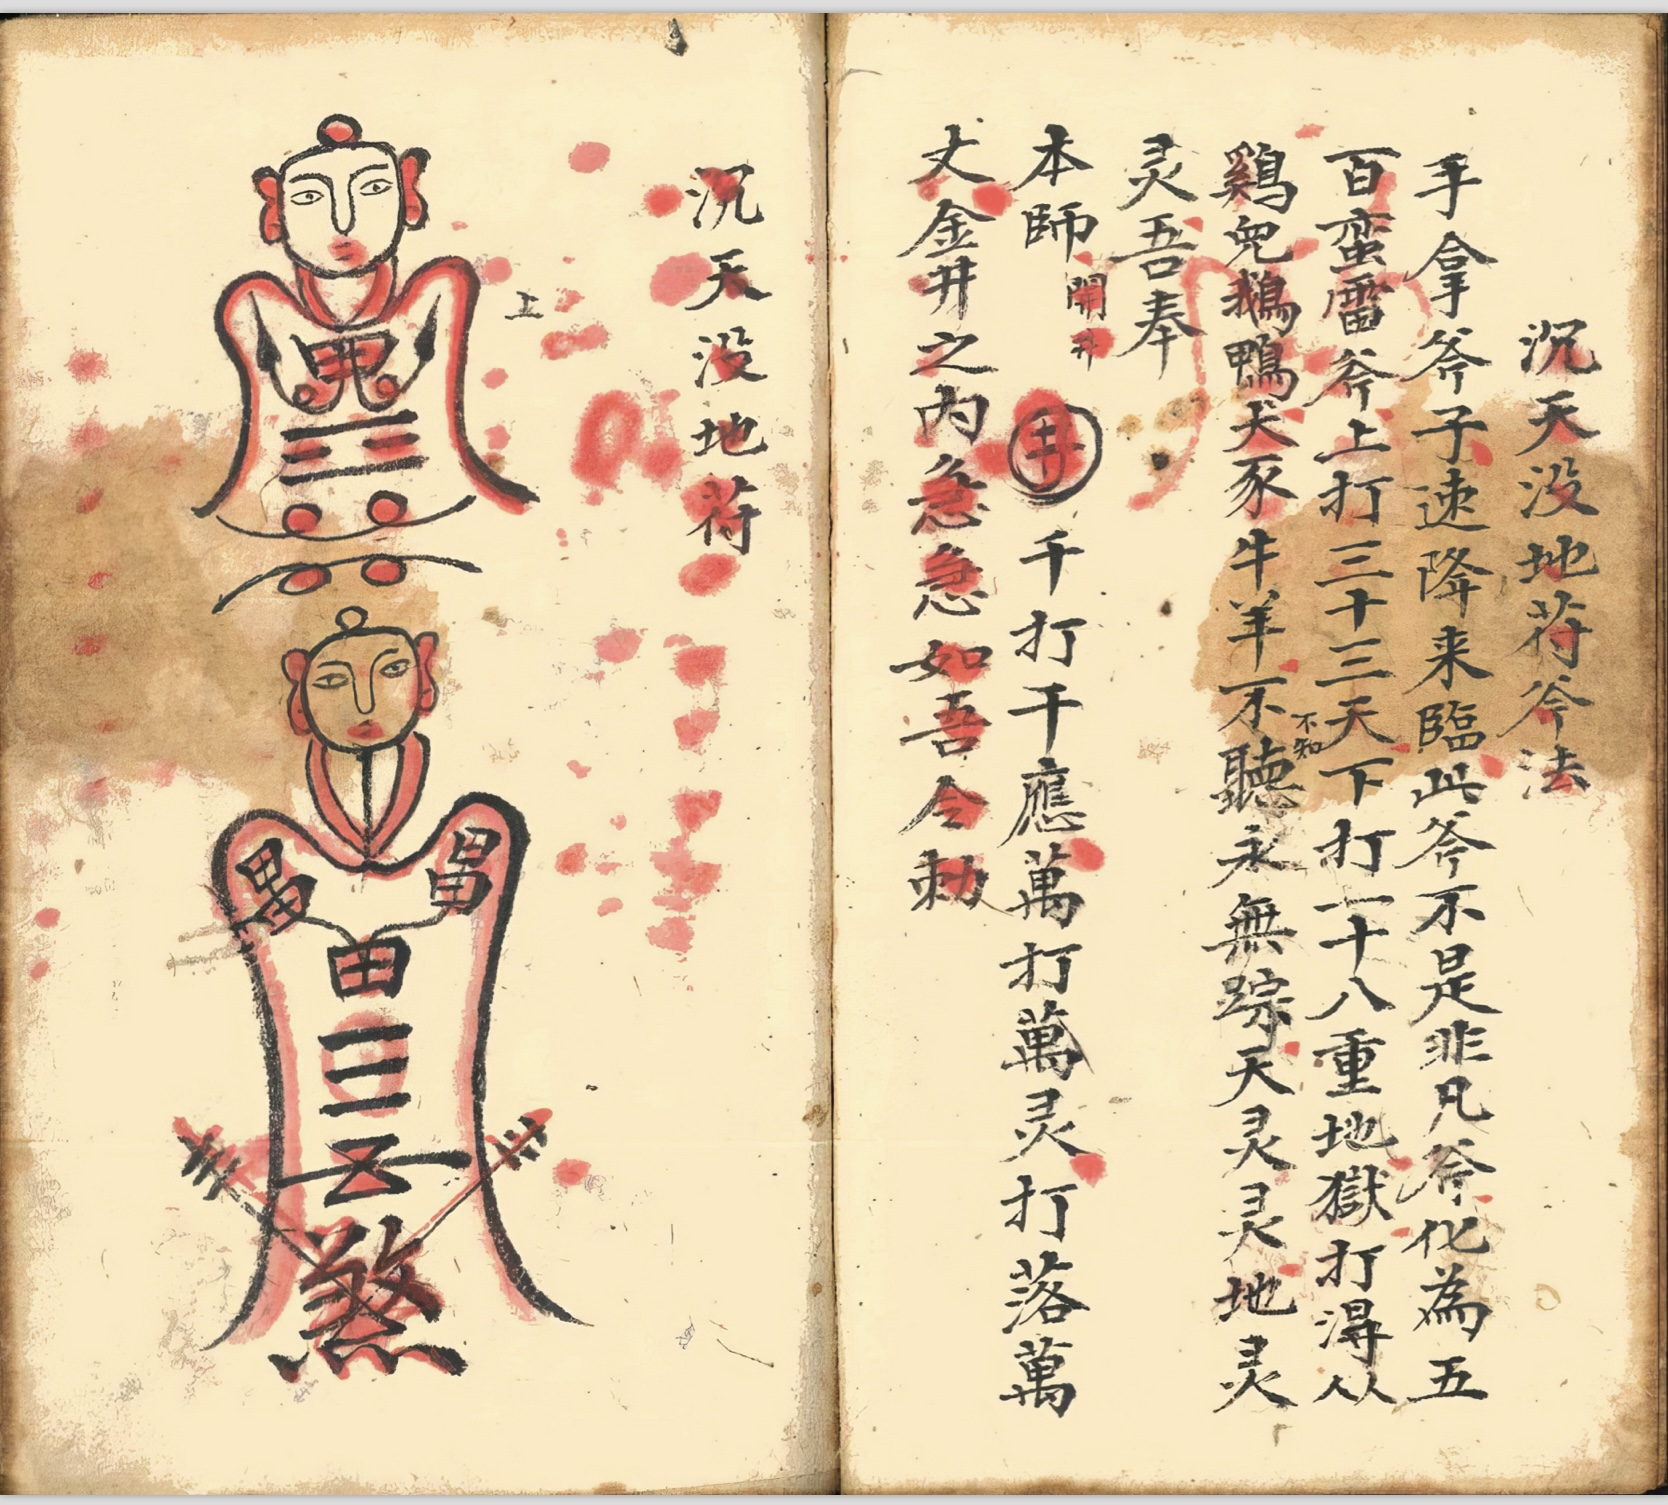 沉天没地符斧法
手拿斧子速降来臨此斧不是非凡斧化為五
百蛮雷斧上打三十三天下打一十八重地獄打淂从
不知
鷄兜鵝鴨犬豕牛羊不聽永無踪天灵灵地灵
灵吾奉
本師開井井千打千應萬打萬灵打落萬
丈金井之內急急如吾令勅
沉天没地符
上
煞